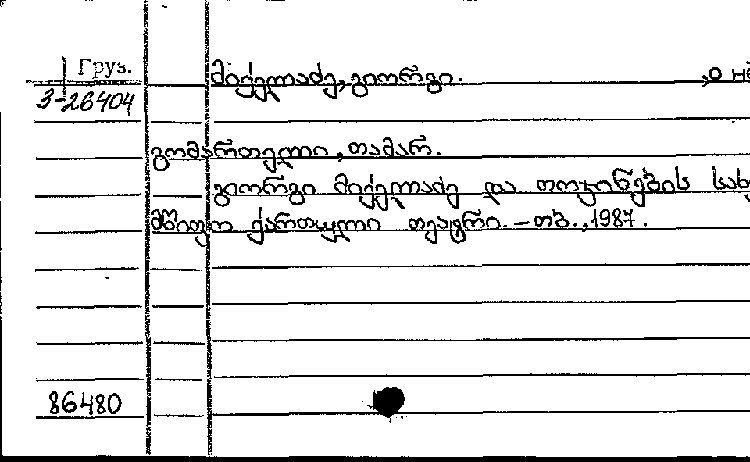 Груз.
მიქელაძე, გიორგი. , о не
3-26404
გომართელი, თამარ.
გიორგი მიქელაძე და თოჯინების სახ
მწიფო ქართული თეატრი. – თბ., 1987.
86480